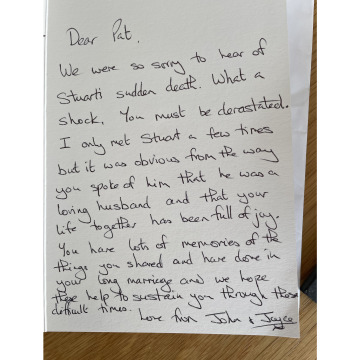 Dear Pat,
We were so sorry to hear of
Stuart's sudden death. What a
shock, You must be devastated.
I only met Stuart a few times
but it was obvious from the way
you spoke of him that he was a
loving husband and that your
life together has been full of joy.
You have lots of memories of the
things you shared and have done in
your long marriage and we hope
these help to sustain you through these
difficult times.
Love from John & Joyce